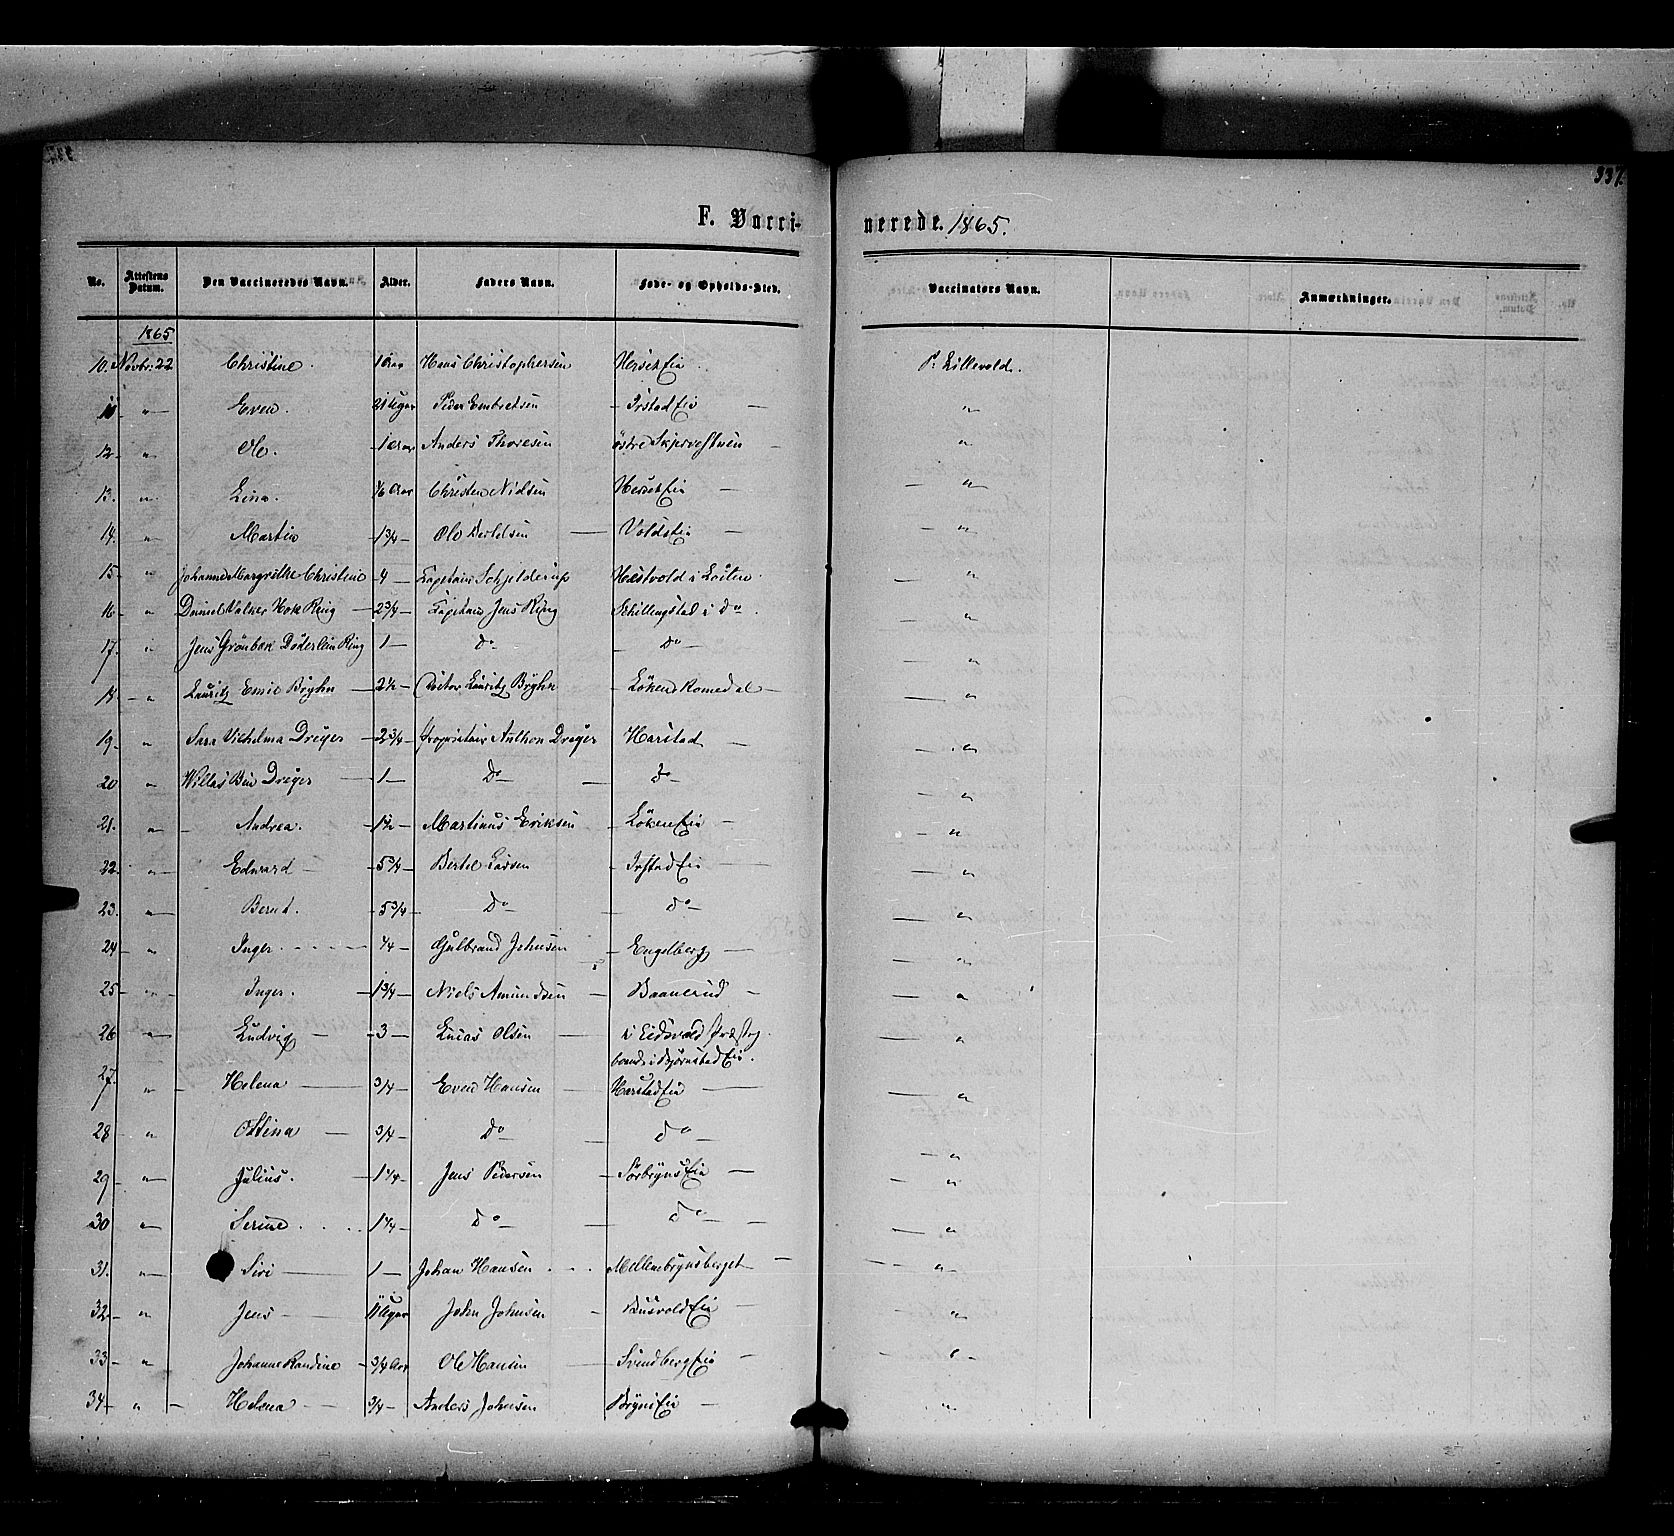 337.
F. Vacci-nerede. 1865.
No. Attestens Datum. Den Vaccineredes Navn. Alder. Faders Navn. Føde- og Opholds-Sted. Vaccinators Navn. Anmærkninger.
1865
10. Novbr. 22 Christine. 1 Aar Hans Christophersen HersetEie P. Lillevold.
11 " Even. 21 Uger Peder Embretsen IrstadEie "
12 " Ole. 1 Aar Anders Thoresen østre "
13. " Lina. Aar Christen Nielsen HersetEie "
14. " Martin 1 3/4 Ole VoldsEie "
15 " Johanne Margrethe Christine 4 Capitain Schjelderup i Løiten "
16 " Daniel Ring 2 3/4 Capitain Jens Ring Schillingstad i do "
17. " Jens Grønbek Døderlein Ring 1 do do "
18. " Lauritz Emil Bryhn 2 1/2 Doctor Lauritz Bryhn Løken Romedal "
19. " Sara Vilhelma Dreyer 2 3/4 Proprietair Anthon Dreyer Harstad "
20 " Dreyer 1 Do do "
21. " Andrea. 1 1/2 Martinus Eriksen LøkenEie "
22. " Edward 5 3/4 Bertel Larsen IrstadEie "
23. " Bernt. 5 3/4 Do do "
24 " Inger 1/4 Gulbrand Johnsen Engelberg "
25 " Inger. 1 3/4 Niels Amundsen Baanerud "
26 " Ludvig 3 Lucas Olsen i Eidsvold Præstg. "
i BjørnstadEie.
27. " Helena 3/4 Even Hansen HarstadEie "
28 " Ottina 3/4 Do do "
29 " Julius. 1 1/4 Jens Pedersen SørbrynsEie "
30 " Serine 1 1/4 do do "
31. " Siri 1 Johan Hansen Mellembrynsberget "
32 " Jens 11 Uger John Johnsen Eie "
33 " Johanne Randine 3/4 Aar Ole Hansen SvendbergEie "
34 " Helena 3/4 Anders Johnsen BryniEie "